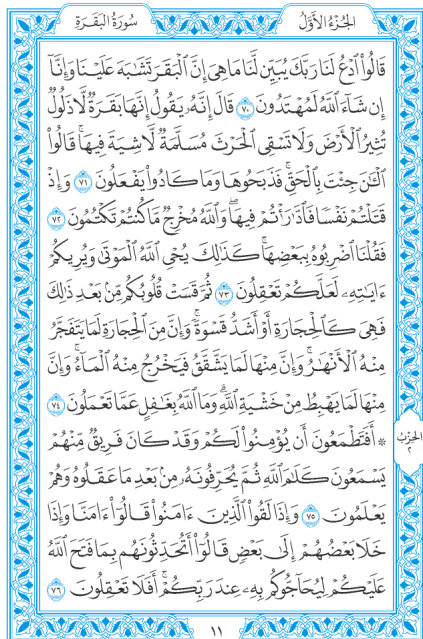 الجُزءُ الأَوَّلُ
سُورَةُ البَقَرَةِ
قَالُوا۟ ٱدْعُ لَنَا رَبَّكَ يُبَيِّن لَّنَا مَا هِىَ إِنَّ ٱلْبَقَرَ تَشَـٰبَهَ عَلَيْنَا وَإِنَّآ
إِن شَآءَ ٱللَّهُ لَمُهْتَدُونَ ٧٠ قَالَ إِنَّهُۥ يَقُولُ إِنَّهَا بَقَرَةٌ لَّا ذَلُولٌ
تُثِيرُ ٱلْأَرْضَ وَلَا تَسْقِى ٱلْحَرْثَ مُسَلَّمَةٌ لَّا شِيَةَ فِيهَا ۚ قَالُوا۟
ٱلْـَٔـٰنَ جِئْتَ بِٱلْحَقِّ ۚ فَذَبَحُوهَا وَمَا كَادُوا۟ يَفْعَلُونَ ٧١ وَإِذْ
قَتَلْتُمْ نَفْسًا فَٱدَّٰرَْٰٔتُمْ فِيهَا ۖ وَٱللَّهُ مُخْرِجٌ مَّا كُنتُمْ تَكْتُمُونَ ٧٢
فَقُلْنَا ٱضْرِبُوهُ بِبَعْضِهَا ۚ كَذَٰلِكَ يُحْىِ ٱللَّهُ ٱلْمَوْتَىٰ وَيُرِيكُمْ
ءَايَـٰتِهِۦ لَعَلَّكُمْ تَعْقِلُونَ ٧٣ ثُمَّ قَسَتْ قُلُوبُكُم مِّنۢ بَعْدِ ذَٰلِكَ
فَهِىَ كَٱلْحِجَارَةِ أَوْ أَشَدُّ قَسْوَةً ۚ وَإِنَّ مِنَ ٱلْحِجَارَةِ لَمَا يَتَفَجَّرُ
مِنْهُ ٱلْأَنْهَـٰرُ ۚ وَإِنَّ مِنْهَا لَمَا يَشَّقَّقُ فَيَخْرُجُ مِنْهُ ٱلْمَآءُ ۚ وَإِنَّ
مِنْهَا لَمَا يَهْبِطُ مِنْ خَشْيَةِ ٱللَّهِ ۗ وَمَا ٱللَّهُ بِغَـٰفِلٍ عَمَّا تَعْمَلُونَ ٧٤
۞ أَفَتَطْمَعُونَ أَن يُؤْمِنُوا۟ لَكُمْ وَقَدْ كَانَ فَرِيقٌ مِّنْهُمْ
يَسْمَعُونَ كَلَـٰمَ ٱللَّهِ ثُمَّ يُحَرِّفُونَهُۥ مِنۢ بَعْدِ مَا عَقَلُوهُ وَهُمْ
يَعْلَمُونَ ٧٥ وَإِذَا لَقُوا۟ ٱلَّذِينَ ءَامَنُوا۟ قَالُوٓا۟ ءَامَنَّا وَإِذَا
خَلَا بَعْضُهُمْ إِلَىٰ بَعْضٍ قَالُوٓا۟ أَتُحَدِّثُونَهُم بِمَا فَتَحَ ٱللَّهُ
عَلَيْكُمْ لِيُحَآجُّوكُم بِهِۦ عِندَ رَبِّكُمْ ۚ أَفَلَا تَعْقِلُونَ ٧٦
الحِزْبُ
٢
١١